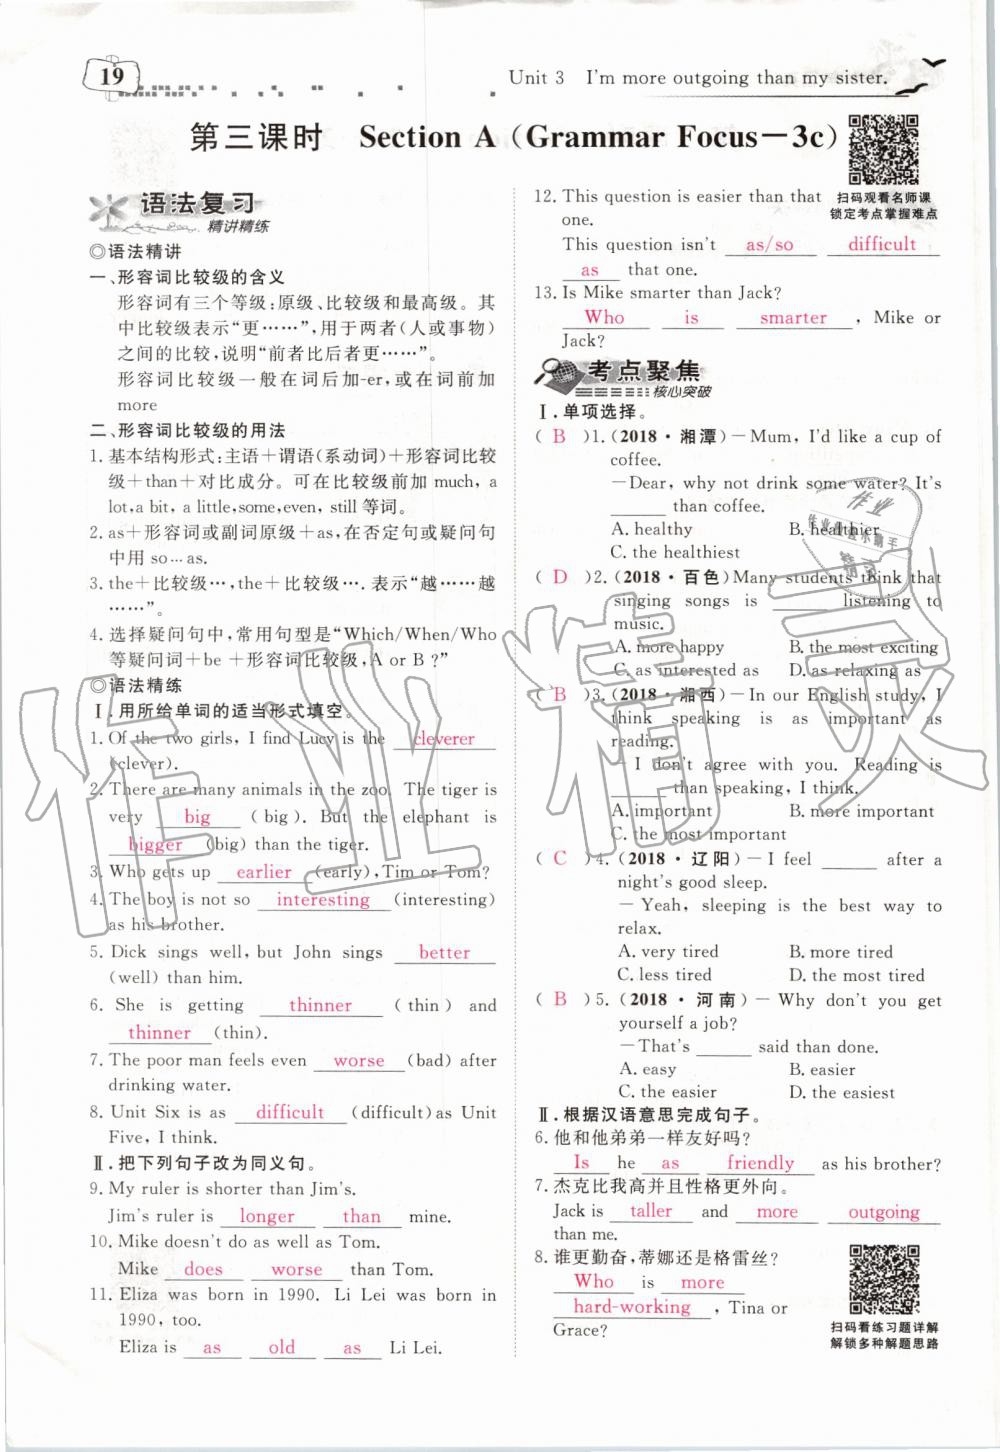 19
Unit 3 I'm more outgoing than my sister.
第三课时 Section A (Grammar Focus—3c)
语法复习
精讲精练
◎语法精讲
一、形容词比较级的含义
形容词有三个等级:原级、比较级和最高级。其
中比较级表示“更……”,用于两者(人或事物)
之间的比较,说明“前者比后者更……”。
形容词比较级一般在词后加-er,或在词前加
more
二、形容词比较级的用法
1. 基本结构形式:主语+谓语(系动词)+形容词比较
级+than+对比成分。可在比较级前加 much, a
lot,a bit, a little,some,even, still 等词。
2. as+形容词或副词原级+as,在否定句或疑问句
中用 so…as.
3. the+比较级…,the+比较级…. 表示“越……越
……”。
4. 选择疑问句中,常用句型是“Which/When/Who
等疑问词+be+形容词比较级,A or B?”
◎语法精练
Ⅰ.用所给单词的适当形式填空。
1. Of the two girls, I find Lucy is the cleverer
(clever).
2. There are many animals in the zoo. The tiger is
very big (big). But the elephant is
bigger (big) than the tiger.
3. Who gets up earlier (early), Tim or Tom?
4. The boy is not so interesting (interesting)
as his brother.
5. Dick sings well, but John sings better
(well) than him.
6. She is getting thinner (thin) and
thinner (thin).
7. The poor man feels even worse (bad) after
drinking water.
8. Unit Six is as difficult (difficult)as Unit
Five, I think.
Ⅱ.把下列句子改为同义句。
9. My ruler is shorter than Jim's.
Jim's ruler is longer than mine.
10. Mike doesn't do as well as Tom.
Mike does worse than Tom.
11. Eliza was born in 1990. Li Lei was born in
1990, too.
Eliza is as old as Li Lei.
12. This question is easier than that
one.
This question isn't as/so difficult
as that one.
13. Is Mike smarter than Jack?
Who is smarter , Mike or
Jack?
扫码观看名师课
锁定考点掌握难点
考点聚焦
核心突破
Ⅰ.单项选择。
( B )1.(2018·湘潭)—Mum, I'd like a cup of
coffee.
—Dear, why not drink some water? It's
______ than coffee.
A. healthy B. healthier
C. the healthiest
( D )2.(2018·百色)Many students think that
singing songs is ______ listening to
music.
A. more happy B. the most exciting
C. as interested as D. as relaxing as
( B )3.(2018·湘西)—In our English study, I
think speaking is as important as
reading.
—I don't agree with you. Reading is
______ than speaking, I think.
A. important B. more important
C. the most important
( C )4.(2018·辽阳)—I feel ______ after a
night's good sleep.
—Yeah, sleeping is the best way to
relax.
A. very tired B. more tired
C. less tired D. the most tired
( B )5.(2018·河南)—Why don't you get
yourself a job?
—That's ______ said than done.
A. easy B. easier
C. the easier D. the easiest
Ⅱ.根据汉语意思完成句子。
6. 他和他弟弟一样友好吗?
Is he as friendly as his brother?
7. 杰克比我高并且性格更外向。
Jack is taller and more outgoing
than me.
8. 谁更勤奋,蒂娜还是格雷丝?
Who is more
hard-working , Tina or
Grace?
扫码看练习题详解
解锁多种解题思路
作业精灵
作业